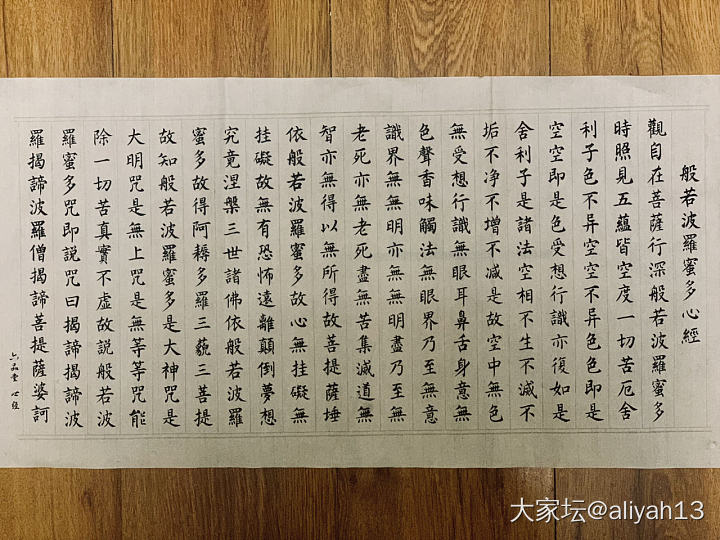 般若波羅蜜多心經
觀自在菩薩行深般若波羅蜜多
時照見五蘊皆空度一切苦厄舍
利子色不异空空不异色色即是
空空即是色受想行識亦復如是
舍利子是諸法空相不生不滅不
垢不净不增不减是故空中無色
無受想行識無眼耳鼻舌身意無
色聲香味觸法無眼界乃至無意
識界無無明亦無無明盡乃至無
老死亦無老死盡無苦集滅道無
智亦無得以無所得故菩提薩埵
依般若波羅蜜多故心無挂礙無
挂礙故無有恐怖遠離顛倒夢想
究竟涅槃三世諸佛依般若波羅
蜜多故得阿耨多羅三藐三菩提
故知般若波羅蜜多是大神咒是
大明咒是無上咒是無等等咒能
除一切苦真實不虛故説般若波
羅蜜多咒即説咒曰揭諦揭諦波
羅揭諦波羅僧揭諦菩提薩婆訶
六品堂 心经
大家坛@aliyah13